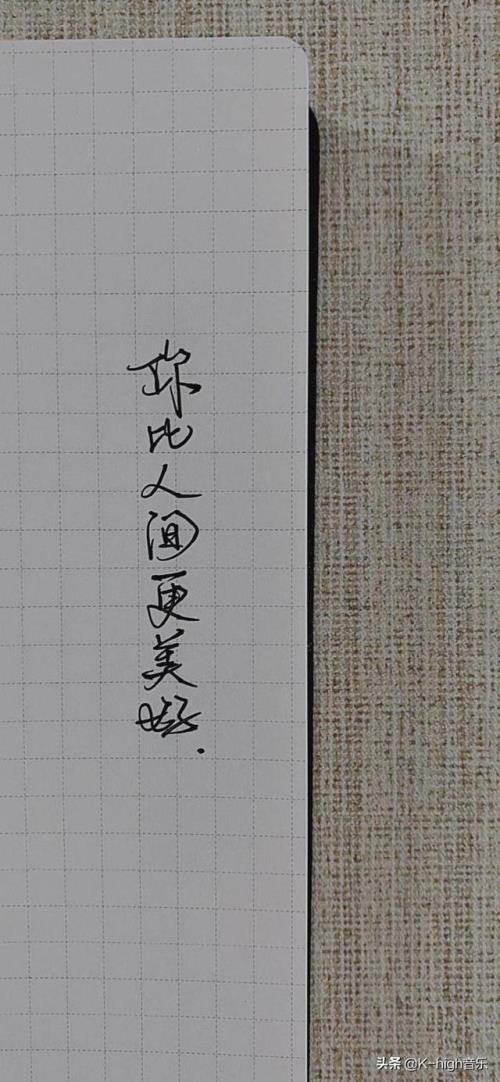 你比人间更美好.
头条 @K-high音乐